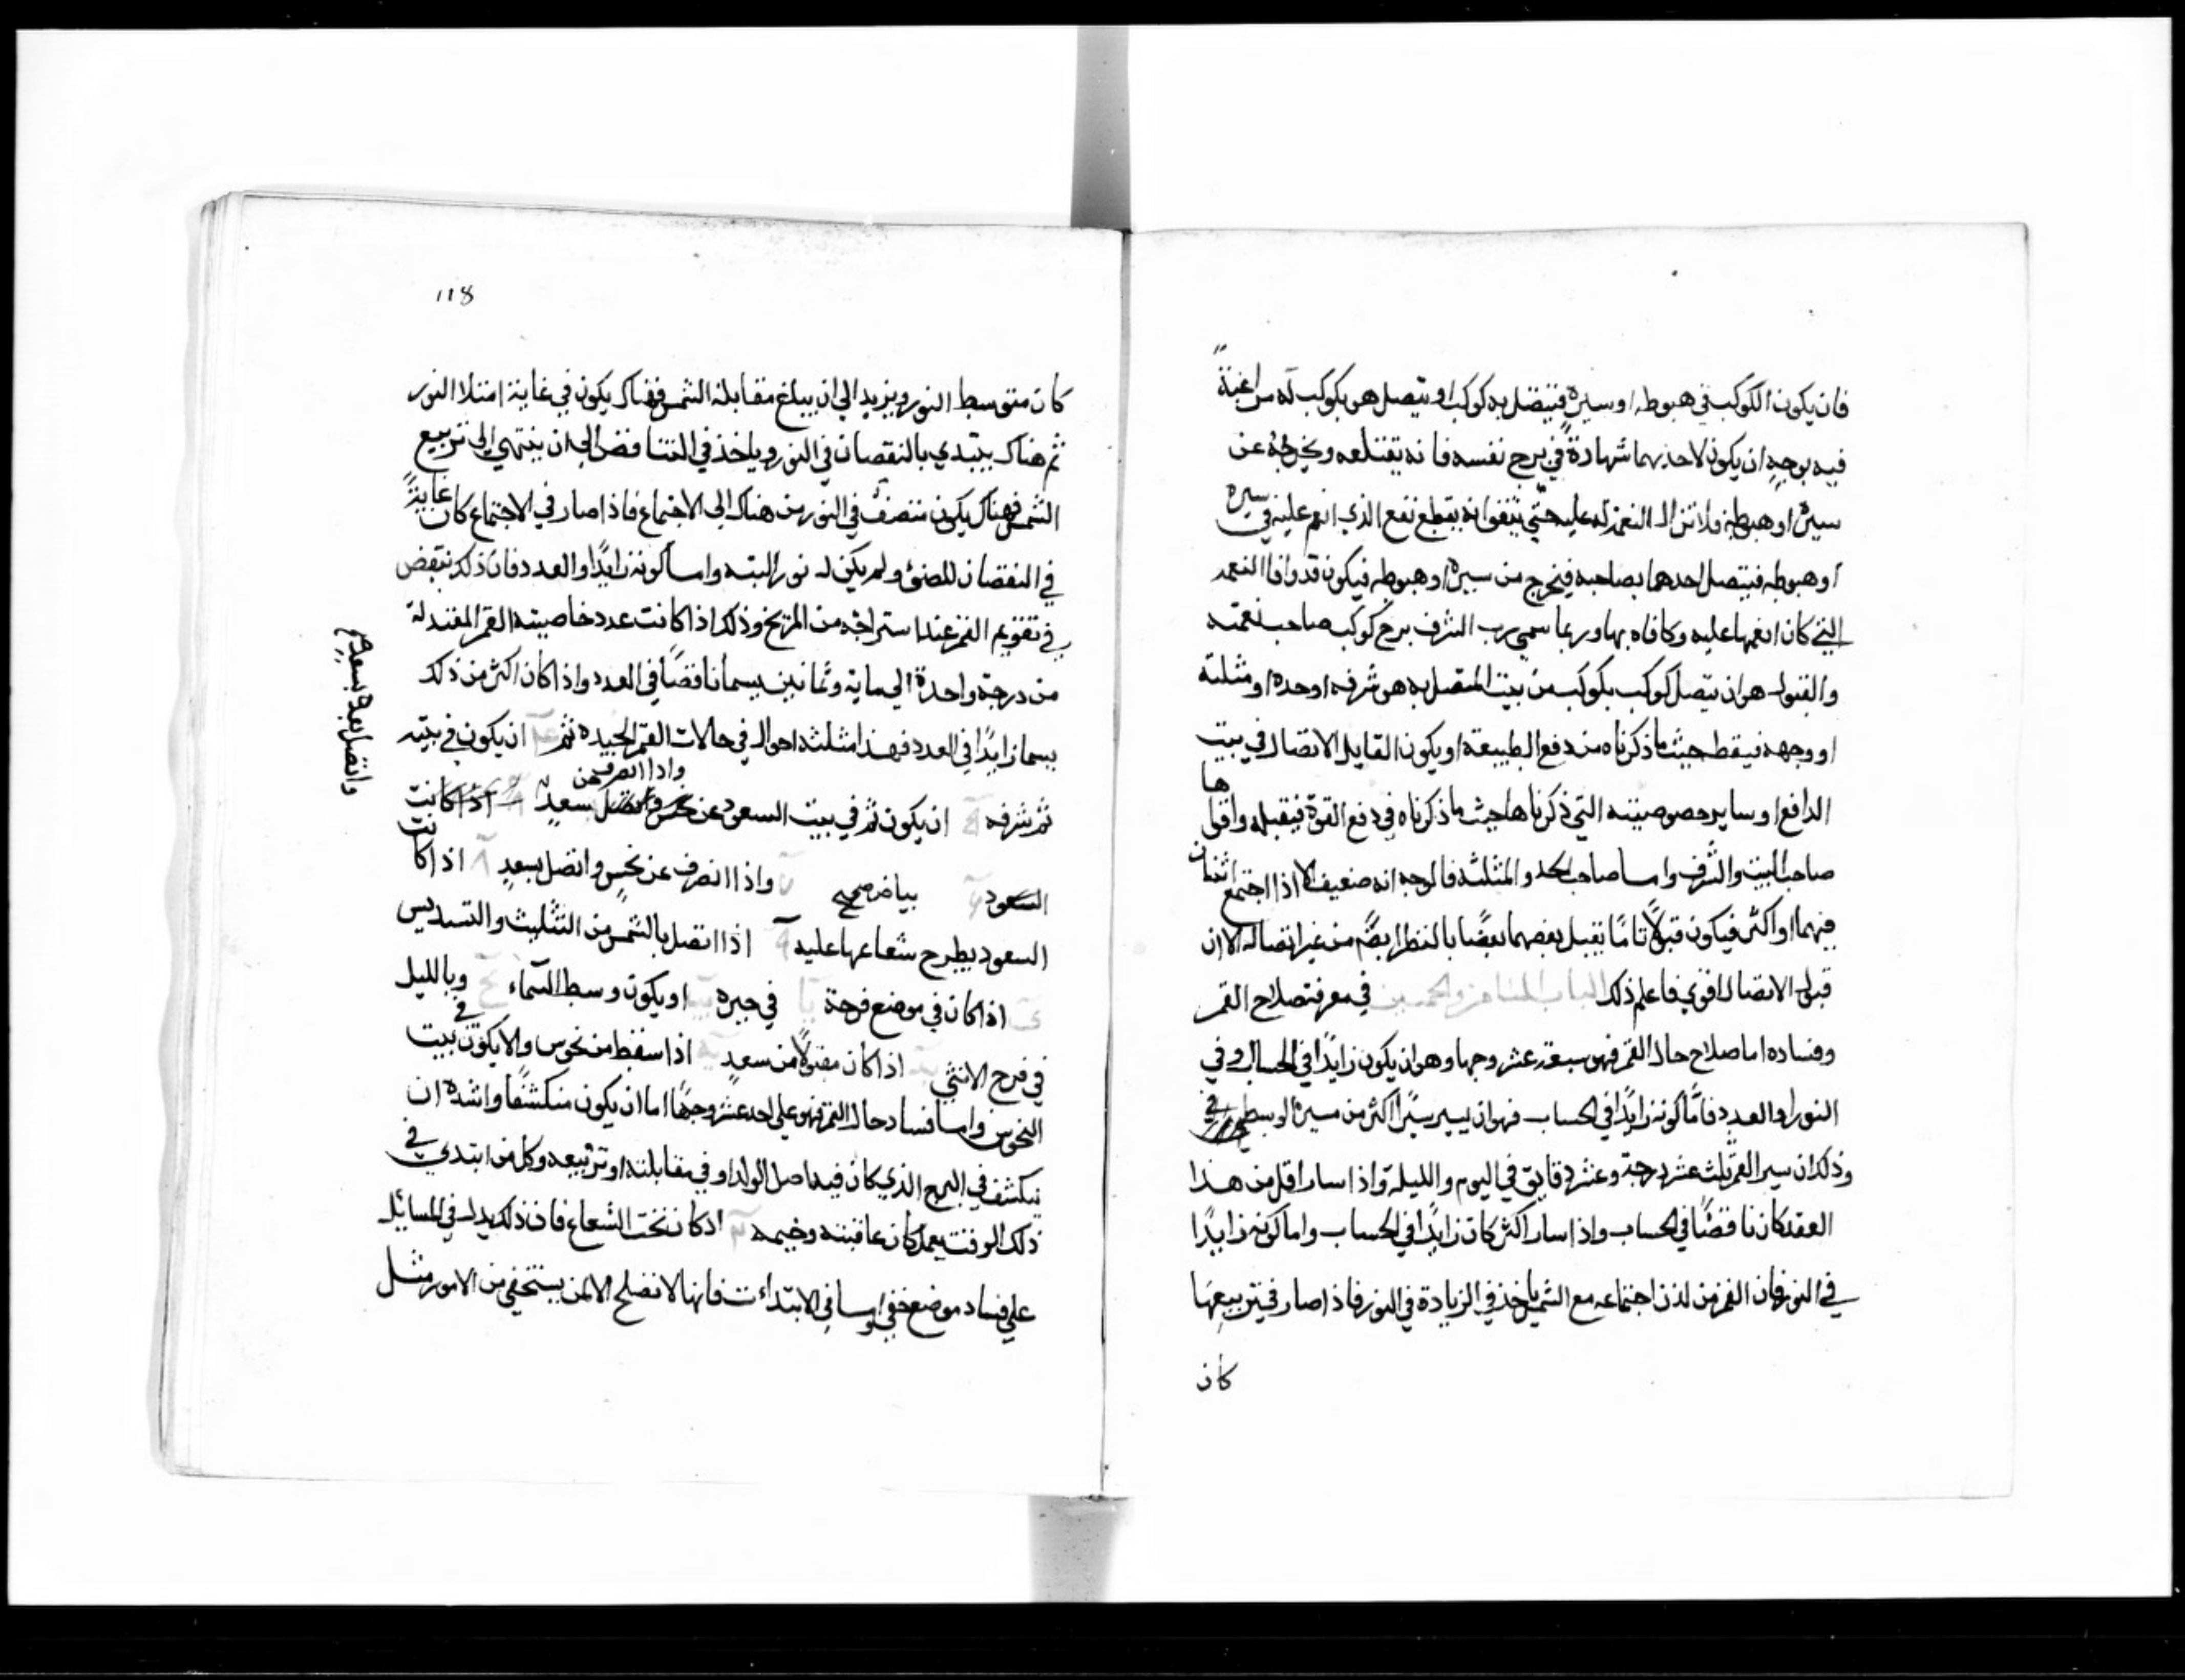 فان يكون الكوكب في هبوطه او سيره فيتصل به كوكب او يتصل هو بكوكب له من اغبة
فيه بوجه ان يكون لاحديهما شهادة في برج نفسه فانه يقتلعه ويخرجه عن
سيره او هبوطه فلا تزال النعمة له عليه حتي يتفق انه يقطع نفع الذي انعم عليه في سيره
او هبوطه فيتصل احدهما بصاحبه فيخرج من سيره او هبوطه فيكون قد وافا النعمه
التي كان انعمها عليه وكافاه بها وربما سمي رب الشرف برج كوكب صاحب نعمته
والقبول هو ان يتصل كوكب بكوكب من بيت المتصل به هو شرفه او حده او مثلثة
او وجهه فيقط حيث ما ذكرناه من دفع الطبيعة او يكون القابل الاتصال في بيت
الدافع او ساير حصوصيته التي ذكرناها حيث ما ذكرناه في دفع القوة فيقبله واقواها
صاحب البيت والشرف واما صاحب الحد والمثلثه فالوجه انه ضعيف الا اذا اجتمع اثنان
منهما او اكثر فيكون قبولا تاما يقبل بعضهما بعضا بالنظر ايضا من غير اتصال الا ان
قبول الاتصال اقوي فاعلم ذلك الباب الثامن والخمسين في معرفة صلاح القمر
وفساده اما صلاح حال القمر فهو سبعة عشر وجها وهو ان يكون زايدا في الحساب وفي
النور او العدد فاما كونه زايدا في الحساب فهو ان يسير سيرا اكثر من سيره الوسط
وذلك ان سير القمر ثلث عشر درجة وعشر دقايق في اليوم والليلة واذا سار اقل من هذا
العقد كان ناقصا في الحساب واذا سار اكثر كان زايدا في الحساب واما كونه زايدا
في النور فان القمر من لذن اجتماعه مع الشمس ياخذ في الزيادة في النور فاذا صار في تربيعها
كان
118
كان متوسط النور ويزيد الي ان يبلغ مقابلة الشمس فهناك يكون في غاية امتلا النور
ثم هناك يبتدي بالنقصان في النور وياخذ في التناقص الي ان ينتهي الي تربيع
الشمس فهناك يكون متنصف في النور من هناك الي الاجتماع فاذا صار في الاجتماع كان غاية
في النقصان للضوء ولم يكن له نور البته واما كونه زايدا والعدد فان ذلك بنقض
في تقويم القمر عند استراجه من المريخ وذلك اذا كانت عدد خاصيته القمر المفندلة
من درجة واحدة الي ماية وثمانين يسما ناقصا في العدد واذا كان اكثر من ذلك
يسما زايدا في العدد فهذا مثلثه احوال في حالات القمر الجيده ثم ان يكون في بيته
ثم شرفه ان يكون ثم في بيت السعود عن نحس واتصل بسعد واذا انصرف من اذا كانت
السعود بياض صحيح واذا انصرف عن نحس واتصل بسعد ٨ اذا كانت
السعود يطرح شعاعها عليه ٩ اذا اتصل بالشمس من التثليث والتسديس
اذا كان في موضع فرحة في حيزه او يكون وسط السماء وبالليل
في فرح الانثي اذا كان مقبولا من سعد اذا سقط من نحوس والا يكون في بيت
النحوس واما فساد حال القمر فهو علي احد عشر وجها اما ان يكون منكشفا واشده ان
ينكشف في البرج الذي كان فيه اصل الولد او في مقابلته او تربيعه وكل من ابتدي في
ذلك الوقت بعمل كان عاقبته وخيمه اذ كان تحت الشعاع فان ذلك يدل في المسائل
علي فساد موضع خفي واما في الابتداءت فانها لا تصلح الا لمن يستخفي من الامور مثل
واتصل بعده بسعد صح